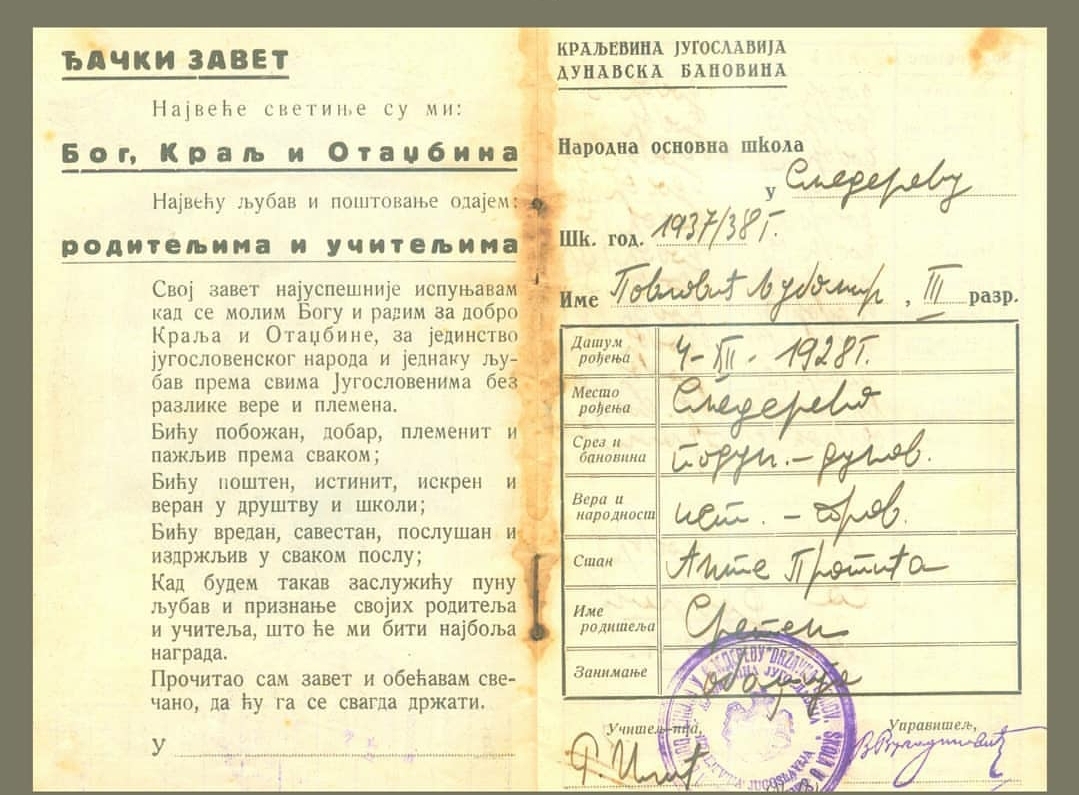 ЂАЧКИ ЗАВЕТ
Највеће светиње су ми:
Бог, Краљ и Отаџбина
Највећу љубав и поштовање одајем:
родитељима и учитељима
Свој завет најуспешније испуњавам
кад се молим Богу и радим за добро
Краља и Отаџбине, за јединство
југословенског народа и једнаку љу-
бав према свима Југословенима без
разлике вере и племена.
Бићу побожан, добар, племенит и
пажљив према сваком;
Бићу поштен, истинит, искрен и
веран у друштву и школи;
Бићу вредан, савестан, послушан и
издржљив у сваком послу;
Кад будем такав заслужићу пуну
љубав и признање својих родитеља
и учитеља, што ће ми бити најбоља
награда.
Прочитао сам завет и обећавам све-
чано, да ћу га се свагда држати.
У
КРАЉЕВИНА ЈУГОСЛАВИЈА
ДУНАВСКА БАНОВИНА
Народна основна школа
у Смедереву
Шк. год. 1937/38 г.
Име Павловић Љубомир, III разр.
Датум рођења 4-XII-1928 г.
Место рођења Смедерево
Срез и бановина подун. – дунав.
Вера и народност ист. – прав.
Стан Анте Протића
Име родитеља Сретен
Занимање
Учитељ-ица, Управитељ,
Р. Илић